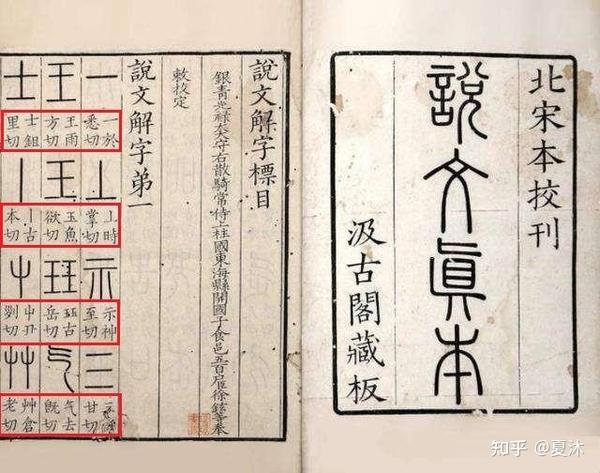 北宋本校刊
說文眞本
汲古閣藏板
說文解字標目
銀青光祿大夫守右散騎常侍上柱國東海縣開國子食邑五百戶臣徐鉉等奉
敕校定
說文解字弟一
一 一於悉切 丄 丄時掌切 示 示神至切 三 甘切
王 王雨方切 玉 玉魚欲切 玨 玨古岳切 气 气去旣切
士 士鉏里切 丨 丨古本切 屮 屮丑切 艸 艸倉老切
知乎 @夏沐